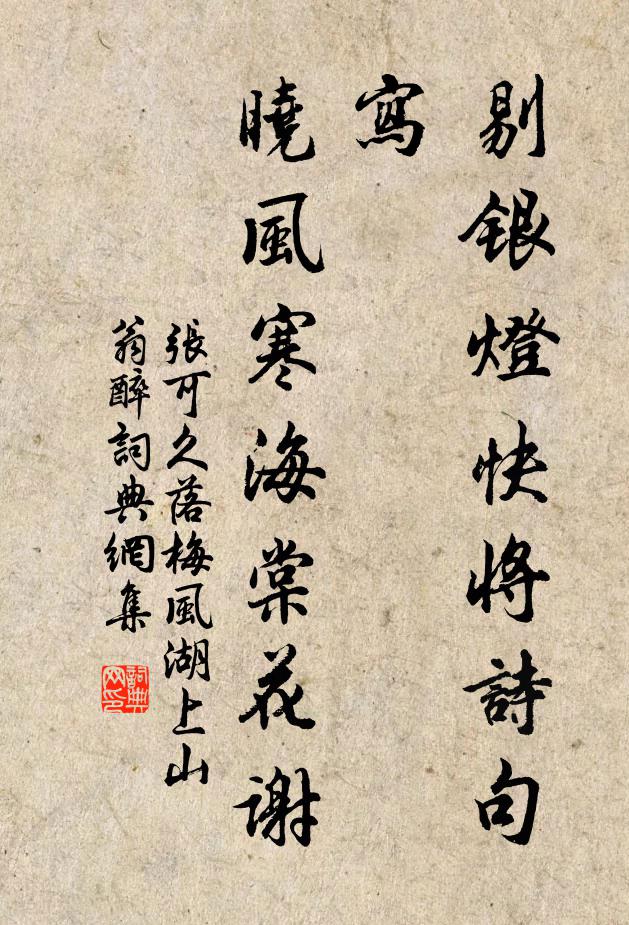 剔銀燈快將詩句
寫
曉風寒海棠花谢
張可久落梅風湖上山
翁醉詞典網集
詞典
网印